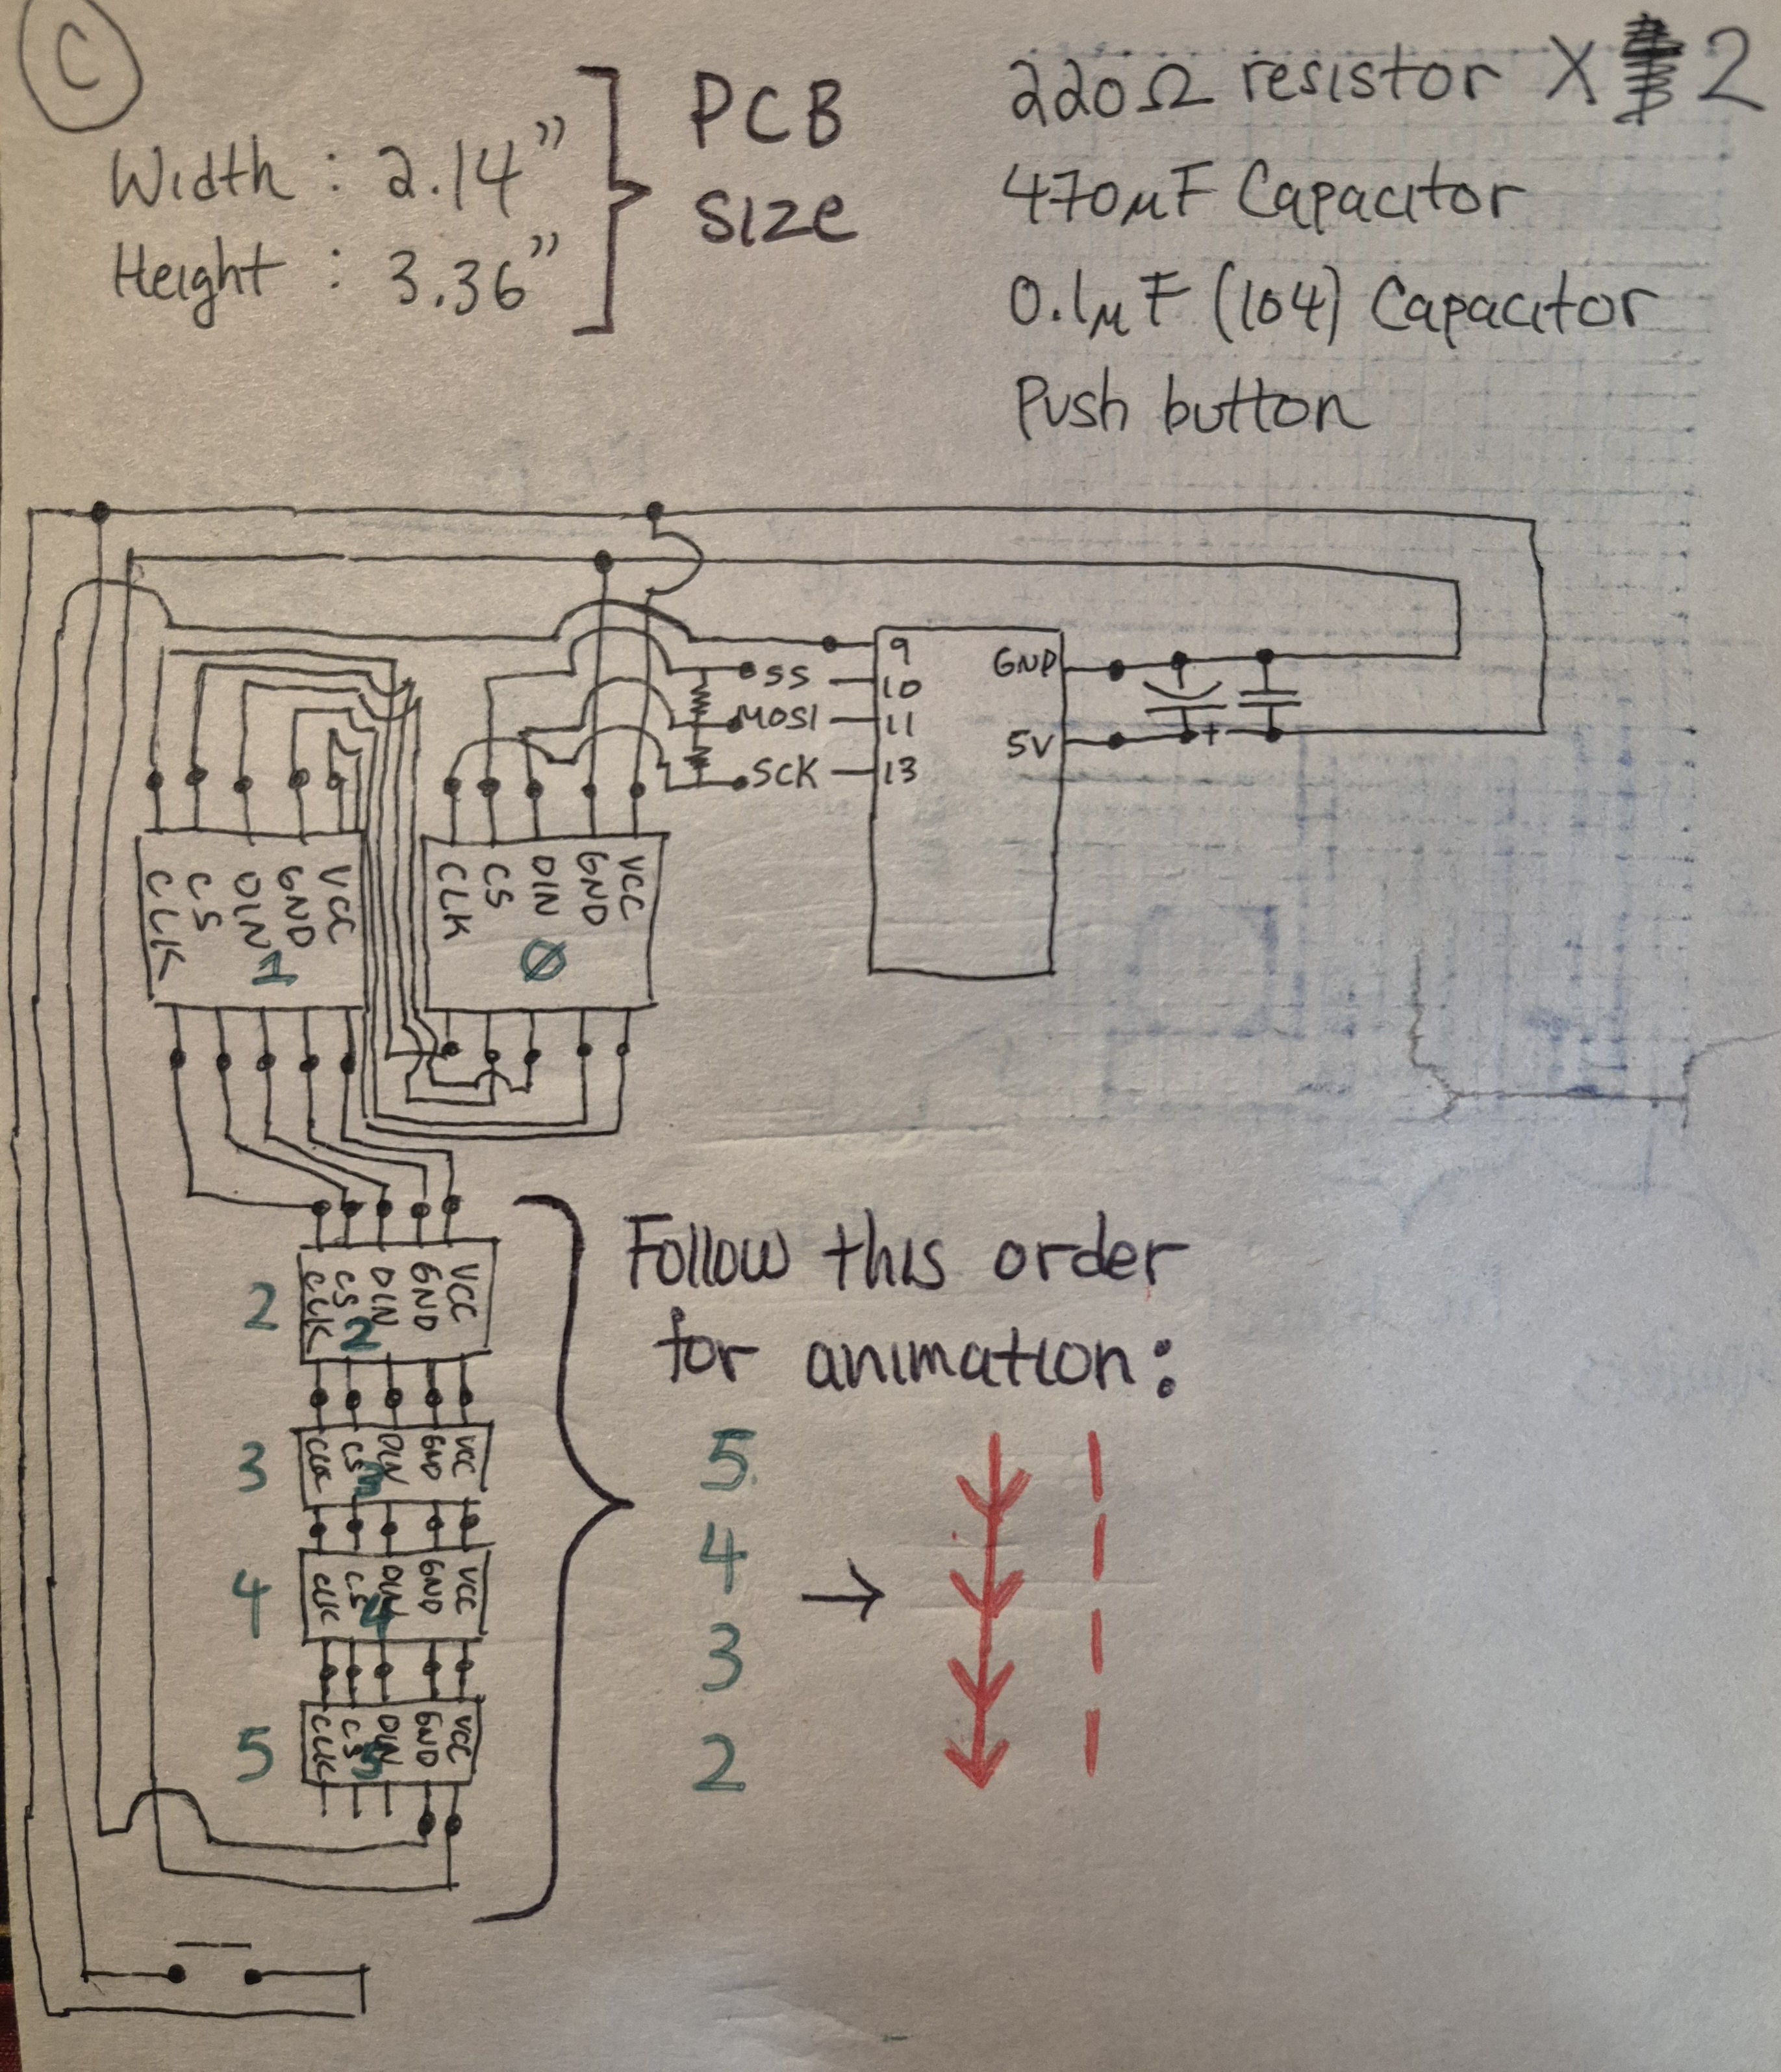 C
Width : 2.14"
Height : 3.36"
PCB
size
220Ω resistor X 2
470μF Capacitor
0.1μF (104) Capacitor
Push button
9
SS 10
MOSI 11
SCK 13
GND
5V
+
CLK CS DIN GND VCC
1
CLK CS DIN GND VCC
0
2
CLK CS DIN GND VCC
2
3
CLK CS DIN GND VCC
3
4
CLK CS DIN GND VCC
4
5
CLK CS DIN GND VCC
5
Follow this order
for animation:
5
4
3
2